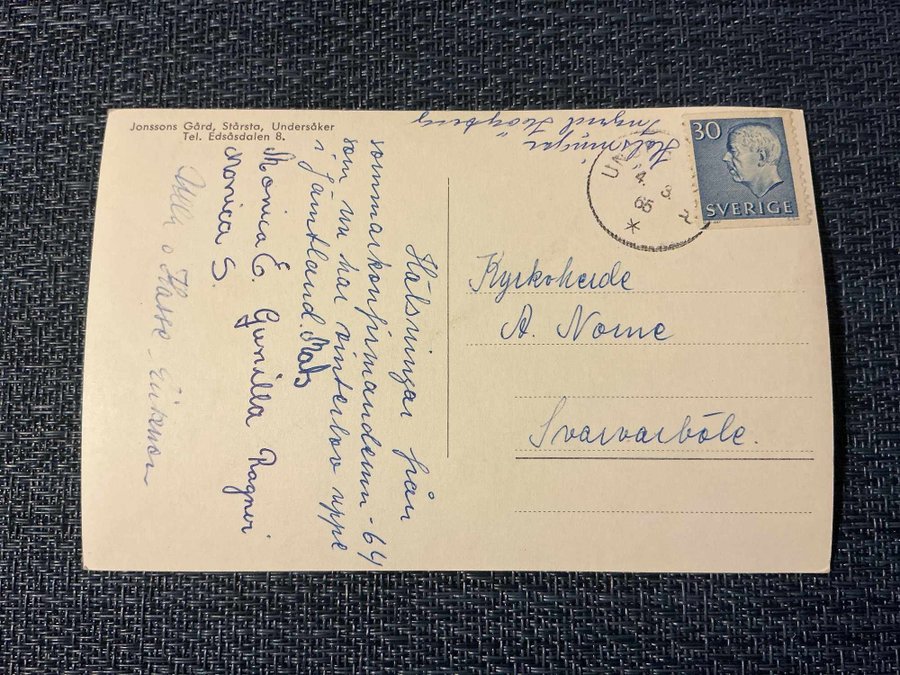 Jonssons Gård, Stårsta, Undersåker
Tel. Edsåsdalen 8.
Hälsningar från
sommarkonfirmanderna -64
som nu har vinterlov uppe
i Jämtland. Mats
Monica E. Gunilla Ragner
Monica S.
Ulla o Hasse
Hälsningar
Ingrid
30
SVERIGE
4 3
65
Kyrkoherde
A. Norne
Svarvarböle.